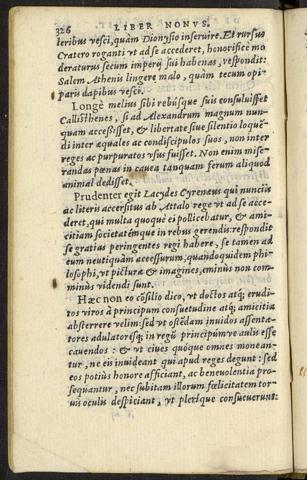 326 LIBER NONVS.
leribus vesci, quàm Dionysio inseruire. Et rursus
Cratero roganti vt ad se accederet, honorificè mo
deraturus secum imperij sui habenas, respondit:
Salem Athenis lingere malo, quàm tecum opi-
paris dapibus vesci.
Longè melius sibi rebúsque suis consuluisset
Callisthenes, si ad Alexandrum magnum nun-
quam accessisset, & libertate siue silentio loquē-
di inter aequales ac condiscipulos suos, non inter
reges ac purpuratos vsus fuisset. Non enim mise-
randas pœnas in cauea tanquam ferum aliquod
animal dedisset.
Prudenter egit Lacydes Cyreneus qui nunciis
ac literis accersitus ab Attalo rege vt ad se acce-
deret, qui multa quoque ei pollicebatur, & ami-
citiam societatémque in rebus gerendis: respondit
se gratias peringentes regi habere, se tamen ad
eum neutiquàm accessurum, quandoquidem phi-
losophi, vt pictura & imagines, eminùs non com-
minùs videndi sunt.
Hæc non eo cōsilio dico, vt doctos atq; erudi-
tos viros à principum consuetudine atq; amicitia
absterrere velim: sed vt ostēdam inuidos assenta-
tores adulatorésq; in regū principúmve aulis esse
cauendos: & vt ciues quóque omnes monean-
tur, ne eis inuideant qui apud reges degunt: sed
eos potiùs honore afficiant, ac beneuolentia pro-
sequantur, nec subitam illorum fœlicitatem tor-
uis oculis despiciant, vt plerique consueuerunt: